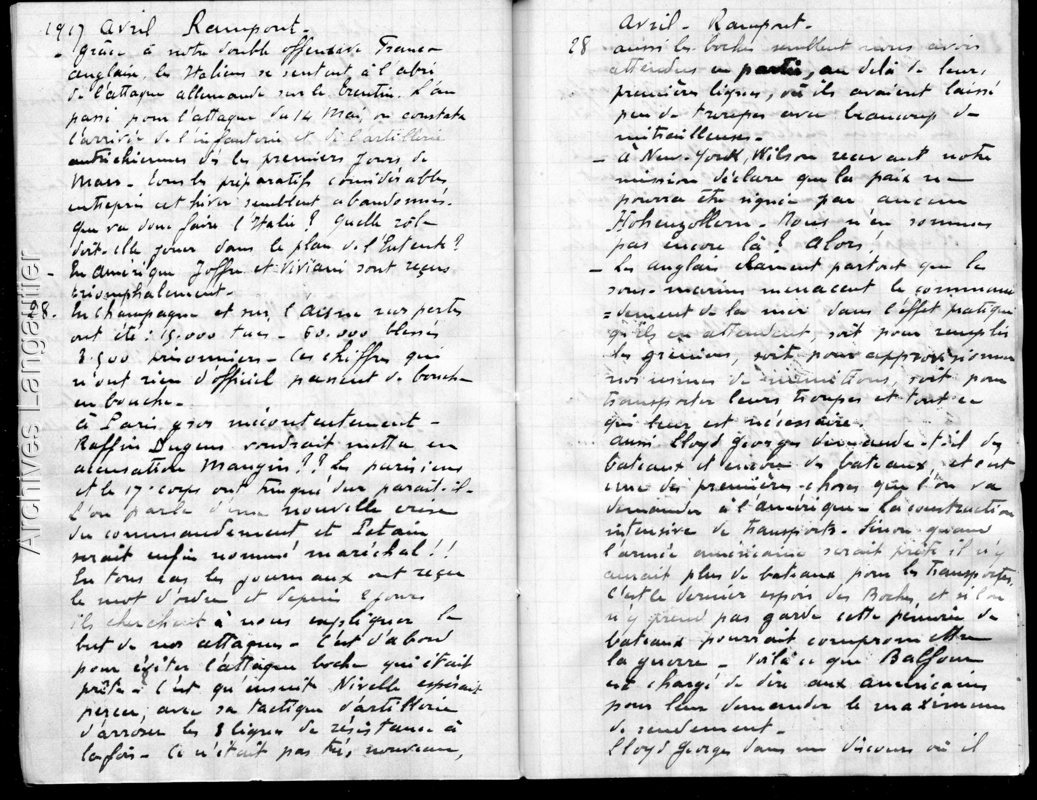 1917 Avril Rampont.
- grâce à notre double offensive Franco
anglaise les Italiens se sentent à l'abri
de l'attaque allemande sur le Trentin. L'an
passé pour l'attaque du 14 Mai, on constata
l'arrivée de l'infanterie et de l'artillerie
autrichiennes dès les premiers jours de
Mars. Tous les préparatifs considérables
entrepris cet hiver semblent abandonnés.
que va donc faire l'Italie? Quelle rôle
doit-elle jouer dans le plan de l'Entente?
- En Amérique Joffre et Viviani sont reçus
triomphalement.
28. En Champagne et sur l'Aisne nos pertes
ont été: 15.000 tués. 60.000 blessés
3.500 prisonniers. Ces chiffres qui
n'ont rien d'officiel passent de bouche
en bouche.
à Paris gros mécontentement -
Raffin Dugens voudrait mettre en
accusation Mangin?? Les parisiens
et le 17e corps ont trinqué dur parait-il.
l'on parle d'une nouvelle crise
du commandement et Petain
serait enfin nommé maréchal!!
En tous cas les journaux ont reçu
le mot d'ordre et depuis 2 jours
ils cherchent à nous expliquer le
but de nos attaques. C'est d'abord
pour éviter l'attaque boche qui était
prête. C'est qu'ensuite Nivelle espérait
percer, avec sa tactique d'artillerie
d'arroser les 3 lignes de résistance à
la fois. Ce n'était pas très nouveau,
Avril - Rampont.
28 aussi les boches semblent nous avoir
attendus en partie, au delà de leurs
premières lignes, où ils avaient laissé
peu de troupes avec beaucoup de
mitrailleuses.
- à New-York, Wilson recevant notre
mission déclare que la paix ne
pourra être signée par aucun
Hohenzollern. Nous n'en sommes
pas encore là! Alors
- Les anglais clament partout que les
sous-marins menacent le comman
=dement de la mer dans l'effet pratique
qu'ils en attendent, soit pour remplir
les greniers, soit pour approvisionner
nos usines de munitions, soit pour
transporter leurs troupes et tout ce
qui leur est nécessaire.
Aussi Lloyd Georges demande-t-il des
bateaux et encore des bateaux, et c'est
une des premières choses que l'on va
demander à l'Amérique - La construction
intensive de transports. Sinon quand
l'armée américaine serait prête il n'y
aurait plus de bateaux pour les transporter.
c'est le dernier espoir des Boches et si l'on
n'y prend pas garde cette pénurie de
bateaux pourrait compromettre
la guerre - Voilà ce que Balfour
est chargé de dire aux américains
pour leur demander le maximum
de rendement.
Lloyd Georges dans un discours où il
Archives Langautier